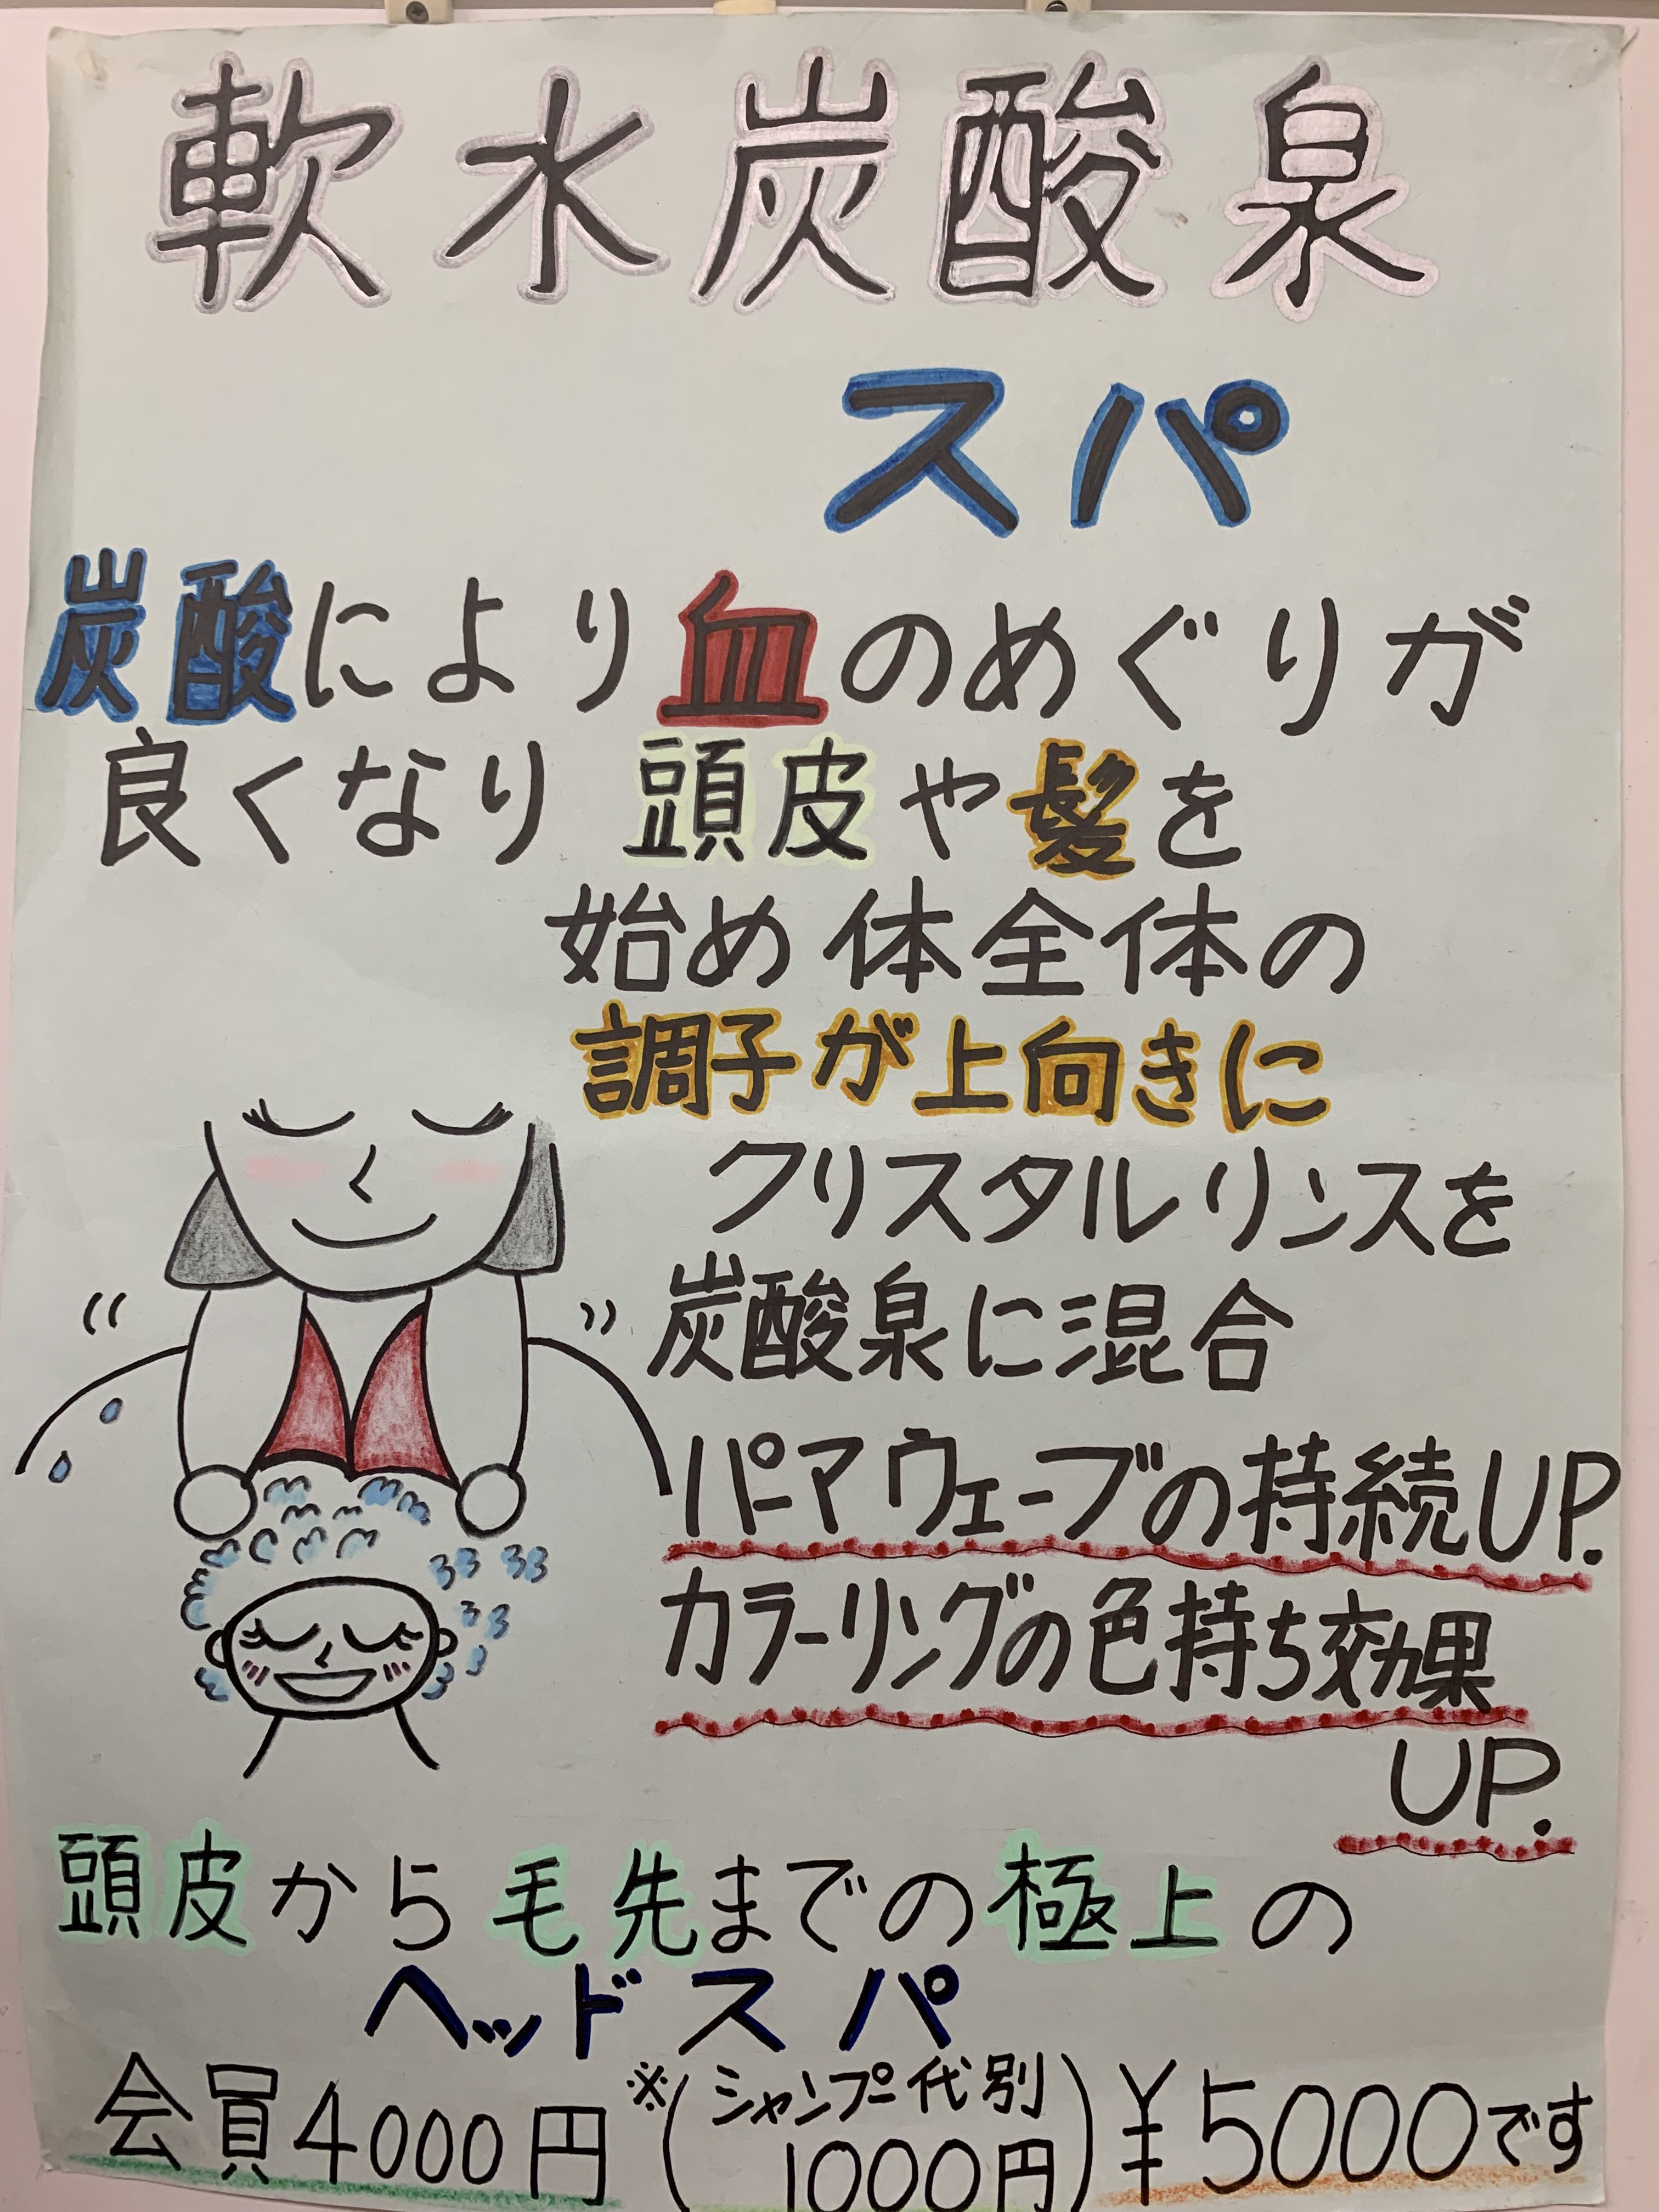 軟水炭酸泉
スパ
炭酸により血のめぐりが
良くなり頭皮や髪を
始め体全体の
調子が上向きに
クリスタルリンスを
炭酸泉に混合
パーマウェーブの持続UP.
カラーリングの色持ち効果
UP.
頭皮から毛先までの極上の
ヘッドスパ
会員4000円※(シャンプー代別1000円)¥5000です